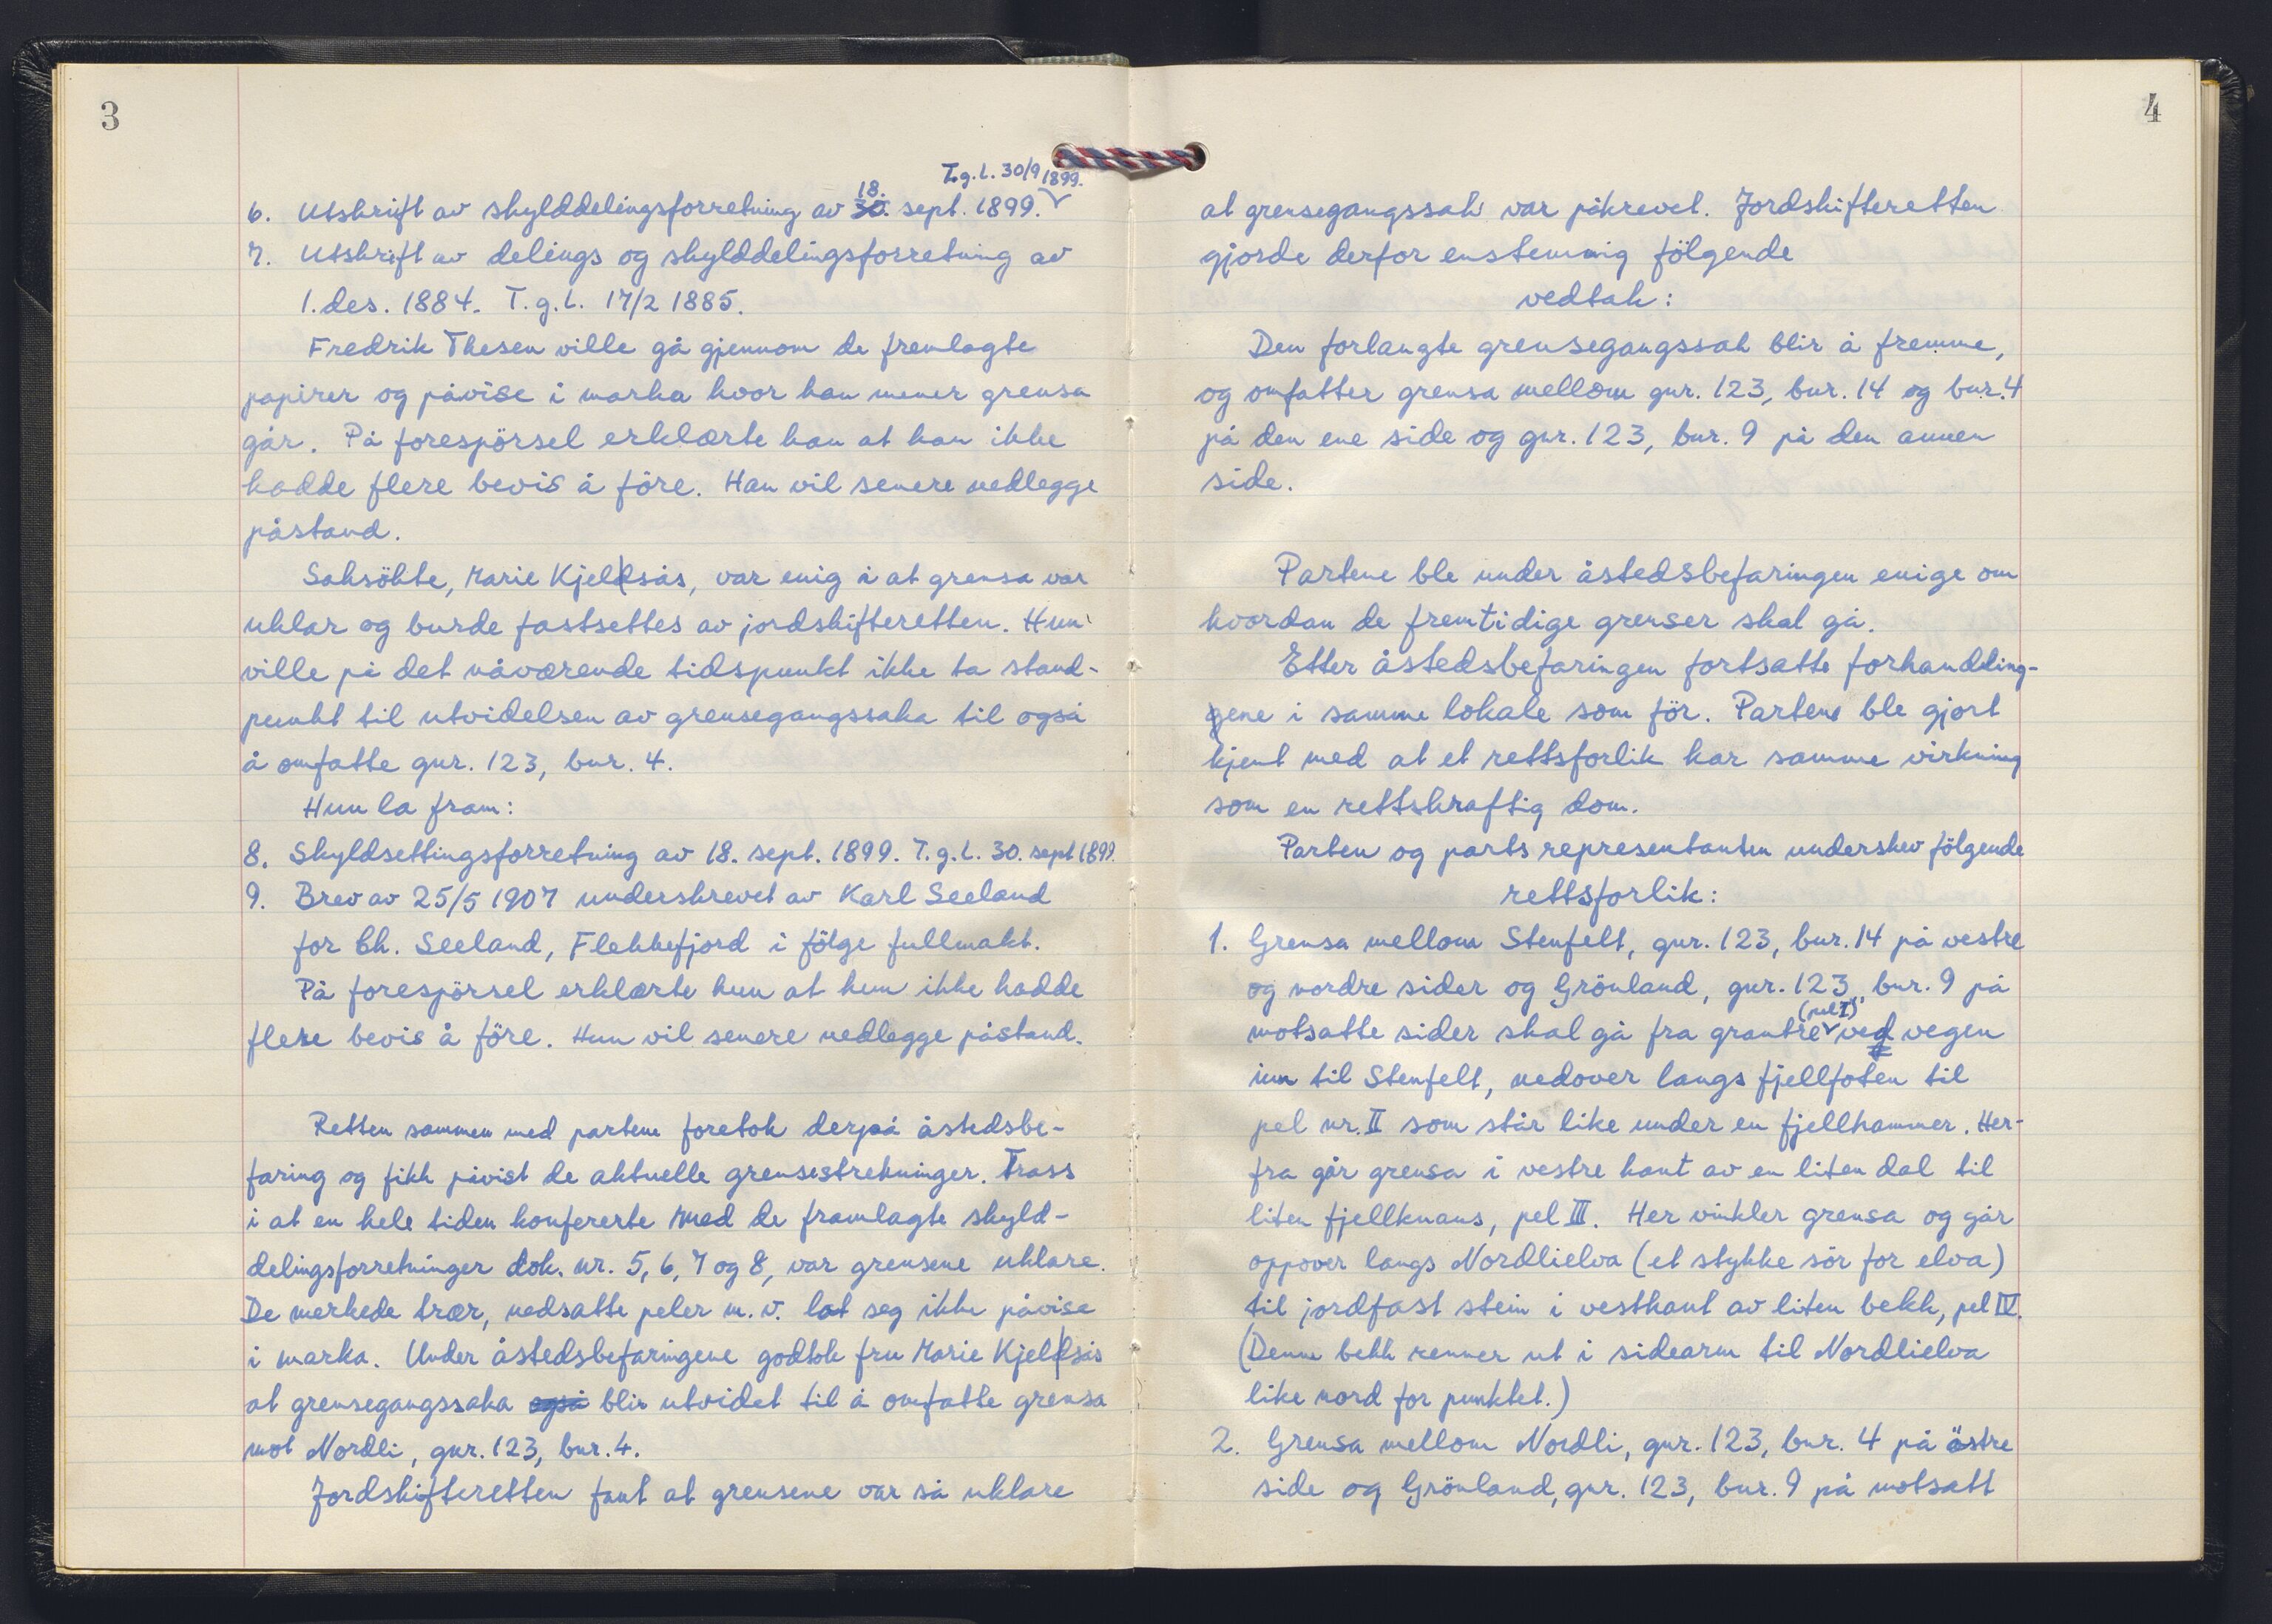 3
T.g.l. 30/9 1899.
18.
6. Utskrift av skylddelingsforretning av 30. sept. 1899.
7. Utskrift av delings og skylddelingsforretning av
1. des. 1884. T.g.l. 17/2 1885.
Fredrik Thesen ville gå gjennom de fremlagte
papirer og påvise i marka hvor han mener grensa
går. På forespörsel erklærte han at han ikke
hadde flere bevis å före. Han vil senere nedlegge
påstand.
Saksökte, Marie Kjeldsås, var enig i at grensa var
uklar og burde fastsettes av jordskifteretten. Hun
ville på det nåværende tidspunkt ikke ta stand-
punkt til utvidelsen av grensegangssaka til også
å omfatte gnr. 123, bnr. 4.
Hun la fram:
8. Skyldsettingsforretning av 18. sept. 1899. T.g.l. 30. sept 1899.
9. Brev av 25/5 1907 underskrevet av Karl Seeland
for Ch. Seeland, Flekkefjord i fölge fullmakt.
På forespörsel erklærte hun at hun ikke hadde
flere bevis å före. Hun vil senere nedlegge påstand.
Retten sammen med partene foretok derpå åstedsbe-
faring og fikk påvist de aktuelle grensestrekninger. Trass
i at en hele tiden konfererte med de framlagte skyld-
delingsforretninger dok. nr. 5, 6, 7 og 8, var grensene uklare.
De merkede trær, nedsatte peler m.v. lot seg ikke påvise
i marka. Under åstedsbefaringene godtok fru Marie Kjeldsås
at grensegangssaka også blir utvidet til å omfatte grensa
mot Nordli, gnr. 123, bnr. 4.
Jordskifteretten fant at grensene var så uklare
4
at grensegangssak var påkrevet. Jordskifteretten
gjorde derfor enstemmig fölgende
vedtak:
Den forlangte grensegangssak blir å fremme,
og omfatter grensa mellom gnr. 123, bnr. 14 og bnr. 4
på den ene side og gnr. 123, bnr. 9 på den annen
side.
Partene ble under åstedsbefaringen enige om
hvordan de fremtidige grenser skal gå.
Etter åstedsbefaringen fortsatte forhandling-
ene i samme lokale som för. Partene ble gjort
kjent med at et rettsforlik har samme virkning
som en rettskraftig dom.
Parten og partsrepresentanten underskev fölgende
rettsforlik:
1. Grensa mellom Stenfelt, gnr. 123, bnr. 14 på vestre
og nordre sider og Grönland, gnr. 123, bnr. 9 på
(pel I)
motsatte sider skal gå fra grantre ved vegen
inn til Stenfelt, nedover langs fjellfoten til
pel nr. II som står like under en fjellhammer. Her-
fra går grensa i vestre kant av en liten dal til
liten fjellknaus, pel III. Her vinkler grensa og går
oppover langs Nordlielva (et stykke sör for elva)
til jordfast stein i vestkant av liten bekk, pel IV.
(Denne bekk renner ut i sidearm til Nordlielva
like nord for punktet.)
2. Grensa mellom Nordli, gnr. 123, bnr. 4 på östre
side og Grönland, gnr. 123, bnr. 9 på motsatt